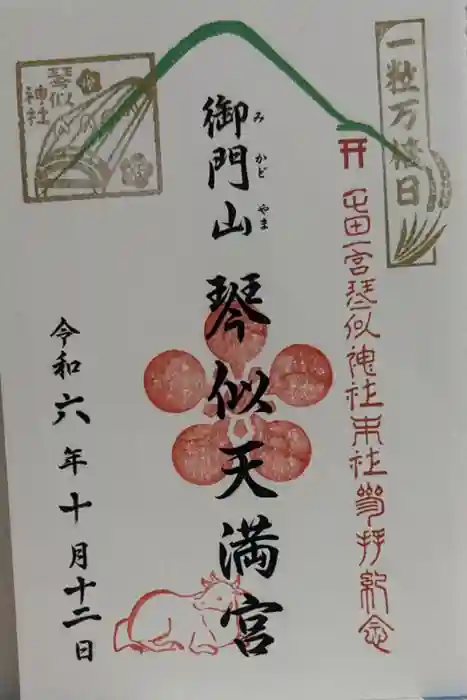 一粒万倍日
屯田一宮琴似神社末社参拝紀念
御門山 琴似天満宮
みかどやま
琴似
神社
令和六年十月十二日